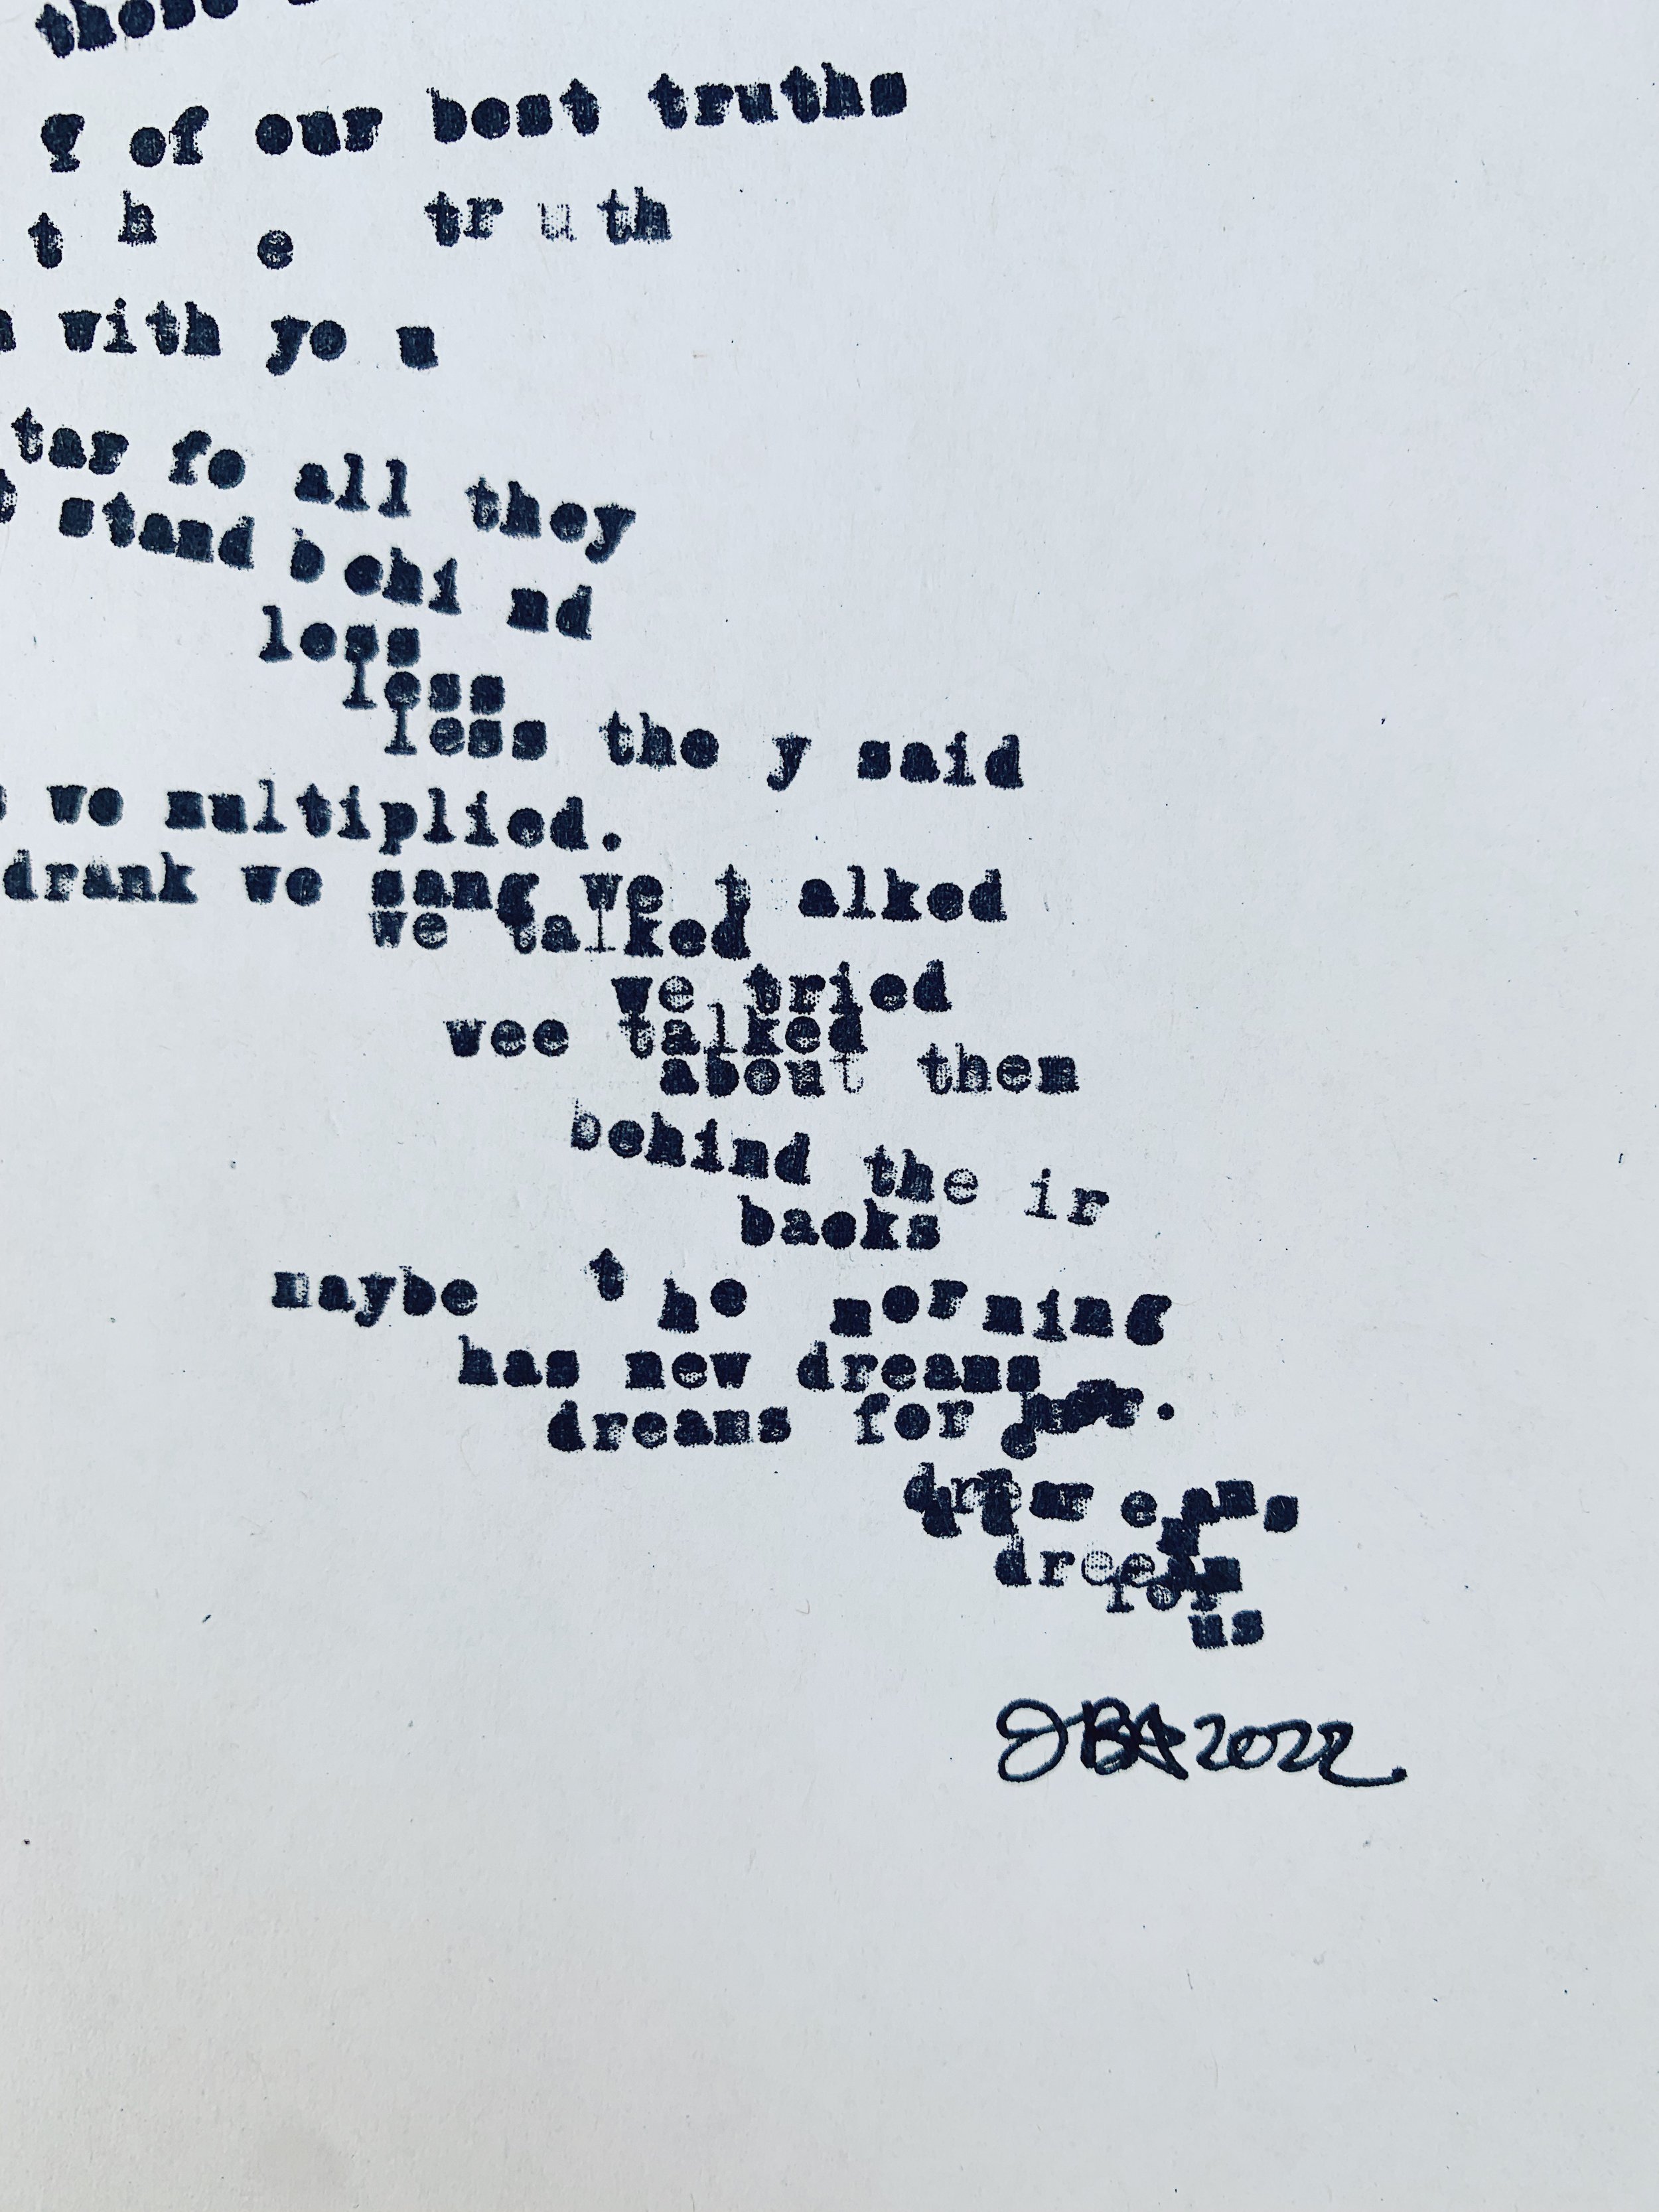 those
g of our best truths
t h e tr u th
with yo u
tar fo all they
stand b ehi nd
less
less
less the y said
we multiplied.
drank we sang we t alked
we talked
we tried
wee talked
about them
behind the ir
backs
maybe t he morning
has new dreams
dreams for
e ams
for
us
JBA 2022